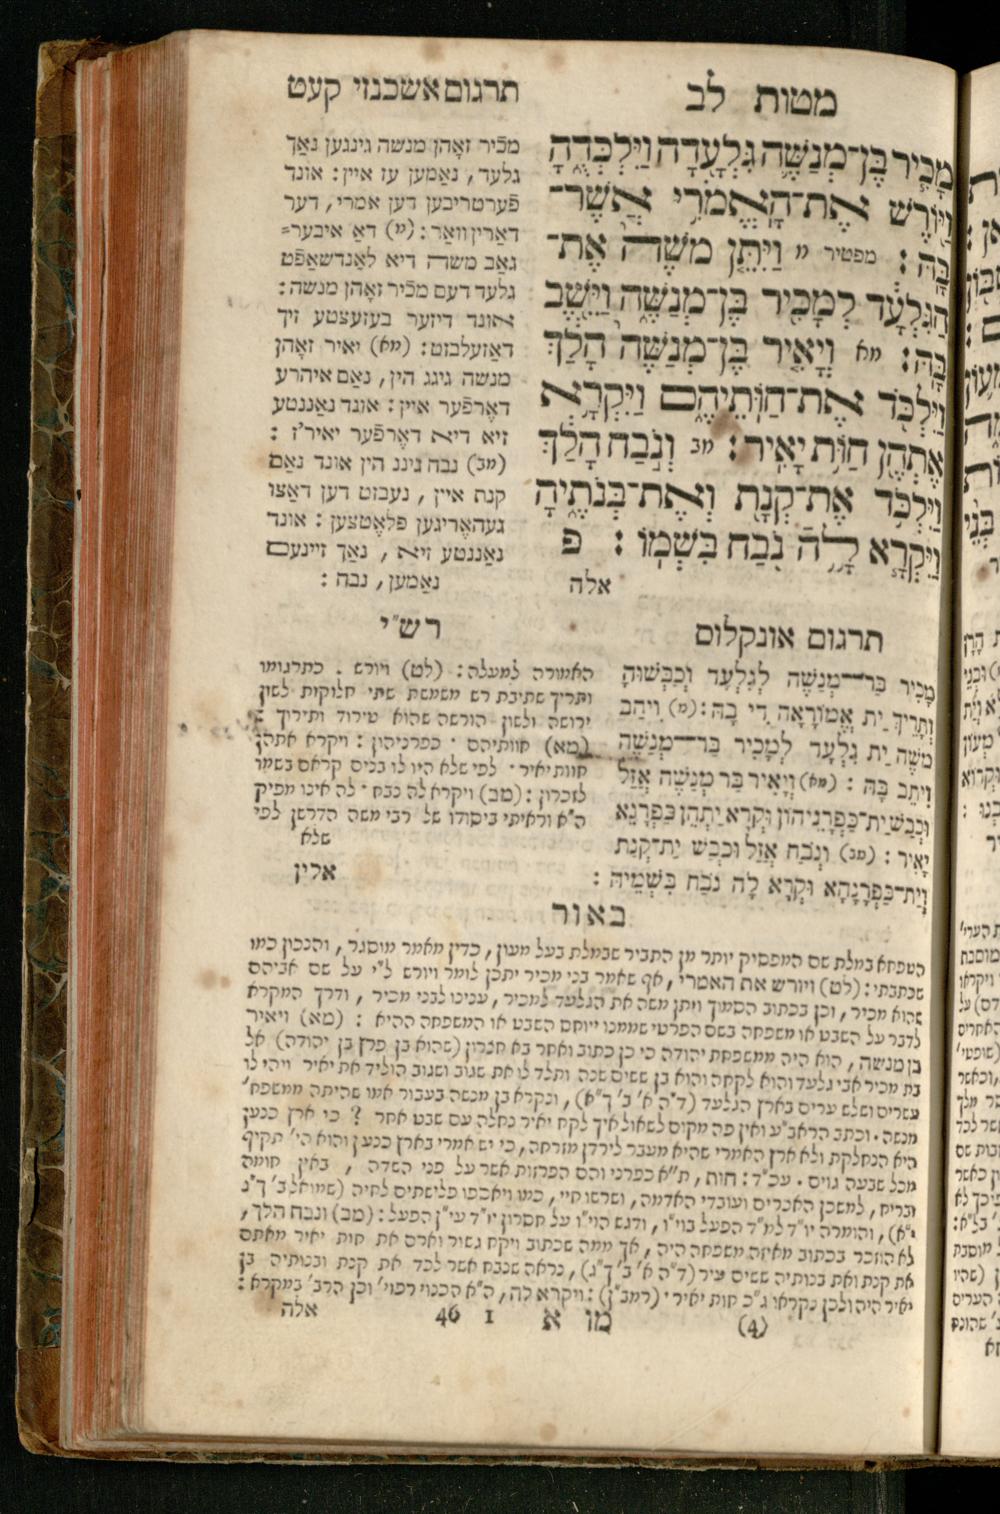 מטות לב
תרגום אשכנזי קעט
מָכִ֧יר בֶּן־מְנַשֶּׁ֛ה גִּלְעָ֖דָה וַֽיִּלְכְּדֻ֑הָ
וַיּ֖וֹרֶשׁ אֶת־הָאֱמֹרִ֥י אֲשֶׁר־
בָּֽהּ׃ מפטיר מ וַיִּתֵּ֤ן מֹשֶׁה֙ אֶת־
הַגִּלְעָ֔ד לְמָכִ֖יר בֶּן־מְנַשֶּׁ֑ה וַיֵּ֖שֶׁב
בָּֽהּ׃ מא וְיָאִ֤יר בֶּן־מְנַשֶּׁה֙ הָלַ֔ךְ
וַיִּלְכֹּ֖ד אֶת־חַוֺּתֵיהֶ֑ם וַיִּקְרָ֥א
אֶתְהֶ֖ן חַוֺּ֥ת יָאִֽיר׃ מב וְנֹ֣בַח הָלַ֔ךְ
וַיִּלְכֹּ֥ד אֶת־קְנָ֖ת וְאֶת־בְּנֹתֶ֑יהָ
וַיִּקְרָ֧א לָ֦ה נֹ֖בַח בִּשְׁמֽוֹ׃ פ
אלה
מכֿיר זאָהן מנשה גינגען נאַך
גלעד, נאַמען עז איין: אונד
פֿערטריבען דען אמרי, דער
דאַרין וואַר: (מ) דאַ איבער=
גאַב משה דיא לאַנדשאַפֿט
גלעד דעם מכֿיר זאָהן מנשה:
אונד דיזער בעזעצטע זיך
דאַזעלבזט: (מא) יאיר זאָהן
מנשה גינג הין, נאַם איהרע
דאָרפֿער איין: אונד נאַננטע
זיא דיא דאָרפֿער יאיר'ז:
(מב) נבח גינג הין אונד נאַם
קנת איין, נעבזט דען דאַצו
געהאָריגען פלאֶטצען: אונד
נאַננטע זיא, נאַך זיינעם
נאַמען, נבח:
תרגום אונקלוס
מָכִיר בַּר־מְנַשֶּׁה לְגִלְעָד וְכַבְשׁוּהָ
וְתָרֵיךְ יַת אֱמוֹרָאָה דִי בָהּ: (מ) וִיהַב
משֶׁה יַת גִּלְעָד לְמָכִיר בַּר־מְנַשֶּׁה
וִיתֵב בָּהּ: (מא) וְיָאִיר בַּר מְנַשֶּׁה אֲזַל
וּכְבַשׁ יַת־כַּפְרָנֵיהוֹן וּקְרָא יַתְהֵן כַּפְרָנֵא
יָאִיר: (מב) וְנֹבַח אֲזַל וּכְבַשׁ יַת־קְנָת
וְיַת־כַּפְרָנָהָא וּקְרָא לָהּ נֹבַח בִּשְׁמֵיהּ:
רש"י
האמורה למעלה: (לט) ויורש. כתרגומו
ותריך שתיבת רש משמשת שתי חלוקות לשון
ירושה ולשון הורשה שהוא טירוד ותירוך:
(מא) חוותיהם. כפרניהון: ויקרא אתהן
חוות יאיר. לפי שלא היו לו בנים קראם בשמו
לזכרון: (מב) ויקרא לה נבח. לה אינו מפיק
ה"א וראיתי ביסודו של רבי משה הדרשן לפי
שלא
אלין
באור
הטפחא במלת שם המפסיק יותר מן התביר שבמלת בעל מעון, כדין מאמר מוסגר, והנכון כמו
שכתבתי: (לט) ויורש את האמרי, אף שאמר בני מכיר יתכן לומר ויורש ל"י על שם אביהם
שהוא מכיר, וכן בכתוב הסמוך ויתן משה את הגלעד למכיר, ענינו לבני מכיר, ודרך המקרא
לדבר על השבט או משפחה בשם הפרטי שממנו ייוחם השבט או המשפחה ההיא: (מא) ויאיר
בן מנשה, הוא היה ממשפחת יהודה כי כן כתוב ואחר בא חצרון (שהוא בן פרץ בן יהודה) אל
בת מכיר אבי גלעד והוא לקחה והוא בן ששים שנה ותלד לו את שגוב ושגוב הוליד את יאיר ויהי לו
עשרים ושלש ערים בארץ הגלעד (ד"ה א' ב' ך"א), ונקרא בן מנשה בעבור אמו שהיתה ממשפח'
מנשה. וכתב הראב"ע ואין פה מקום לשאול איך לקח יאיר נחלה עם שבט אחר? כי ארץ כנען
היא הנחלקת ולא ארץ האמרי שהיא מעבר לירדן מזרחה, כי יש אמרי בארץ כנען והוא הי' תקיף
מכל שבעה גוים. עכ"ד: חות, ת"א כפרני והם הפרזות אשר על פני השדה, באין חומה
ובריח, למשכן האכרים ועובדי האדמה, ושרשו חיי, כמו ויאספו פלשתים לחיה (שמואל ב' ך"ג
י"א), והומרה יו"ד למ"ד הפעל בוי"ו, ודגש הוי"ו על חסרון יו"ד עי"ן הפעל: (מב) ונבח הלך,
לא הוזכר בכתוב מאיזה משפחה היה, אך ממה שכתוב ויקח גשור וארם את חות יאיר מאתם
את קנת ואת בנותיה ששים עיר (ד"ה א' ב' ך"ג), נראה שנבח אשר לכד את קנת ובנותיה בן
יאיר היה ולכן נקראו ג"כ חות יאיר. (רמב"ן): ויקרא לה, ה"א הכנוי רפוי' וכן הרב' במקרא:
(4) מו א 1 46 אלה